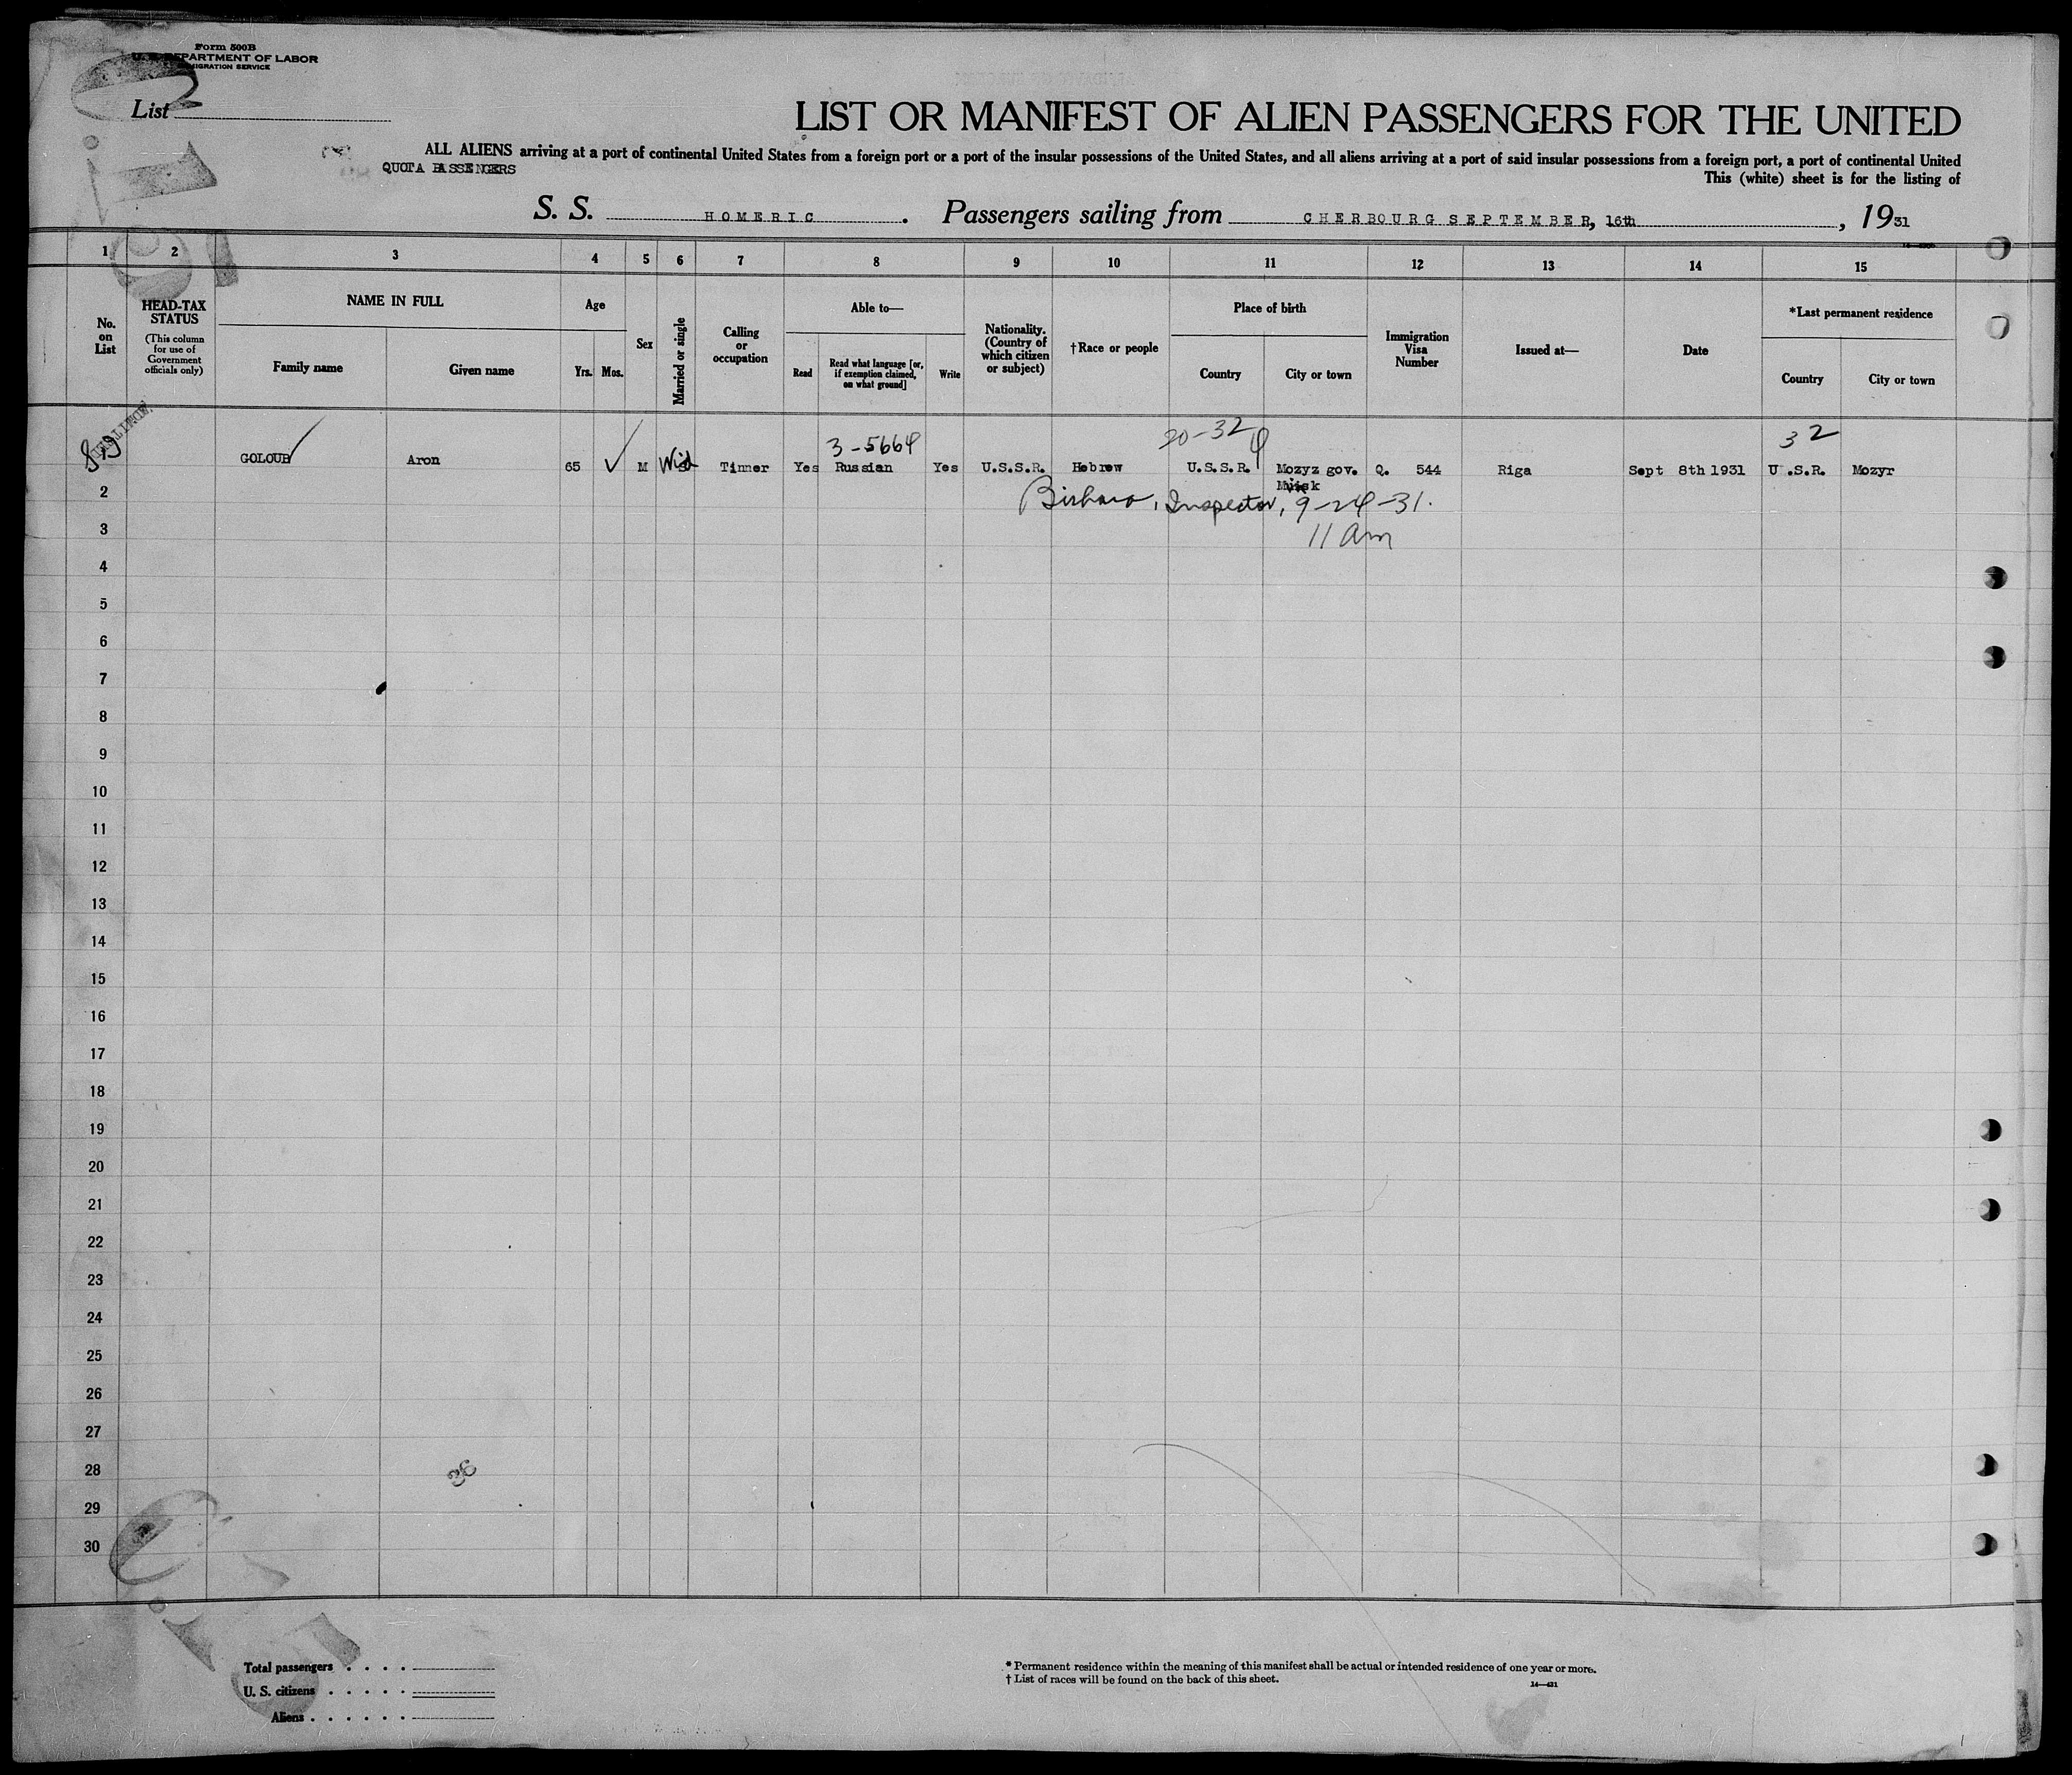 Form 500B
U. S. DEPARTMENT OF LABOR
IMMIGRATION SERVICE
List
LIST OR MANIFEST OF ALIEN PASSENGERS FOR THE UNITED
ALL ALIENS arriving at a port of continental United States from a foreign port or a port of the insular possessions of the United States, and all aliens arriving at a port of said insular possessions from a foreign port, a port of continental United
QUOTA PASSENGERS
This (white) sheet is for the listing of
S. S. HOMERIC. Passengers sailing from CHERBOURG SEPTEMBER, 16th, 1931
1 2 3 4 5 6 7 8 9 10 11 12 13 14 15
No. on List
HEAD-TAX STATUS
(This column for use of Government officials only)
NAME IN FULL
Family name
Given name
Age
Yrs. Mos.
Sex
Married or single
Calling or occupation
Able to—
Read
Read what language [or, if exemption claimed, on what ground]
Write
Nationality. (Country of which citizen or subject)
†Race or people
Place of birth
Country
City or town
Immigration Visa Number
Issued at—
Date
*Last permanent residence
Country
City or town
3-5664 20-32 32
GOLOUB Aron 65 ✓ M Wid Tinner Yes Russian Yes U.S.S.R. Hebrew U.S.S.R. Mozyz gov. Q. 544 Riga Sept 8th 1931 U.S.R. Mozyr
Minsk
2
Inspector, 9-24-31.
3
11 am
4
5
6
7
8
9
10
11
12
13
14
15
16
17
18
19
20
21
22
23
24
25
26
27
28
36
29
30
Total passengers . . . .
U. S. citizens . . . . .
Aliens . . . . . .
* Permanent residence within the meaning of this manifest shall be actual or intended residence of one year or more.
† List of races will be found on the back of this sheet.
14—431